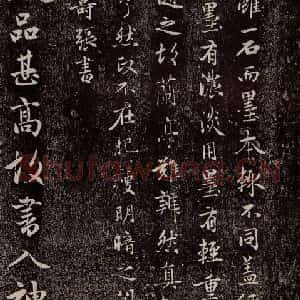 雖一石而墨本輒不同蓋
墨有濃淡用墨有輕重
隨之故蘭亭難辨然真
了然正不在肥瘦明暗之間
壽張書
品甚高故書入神
Shufawang.CN